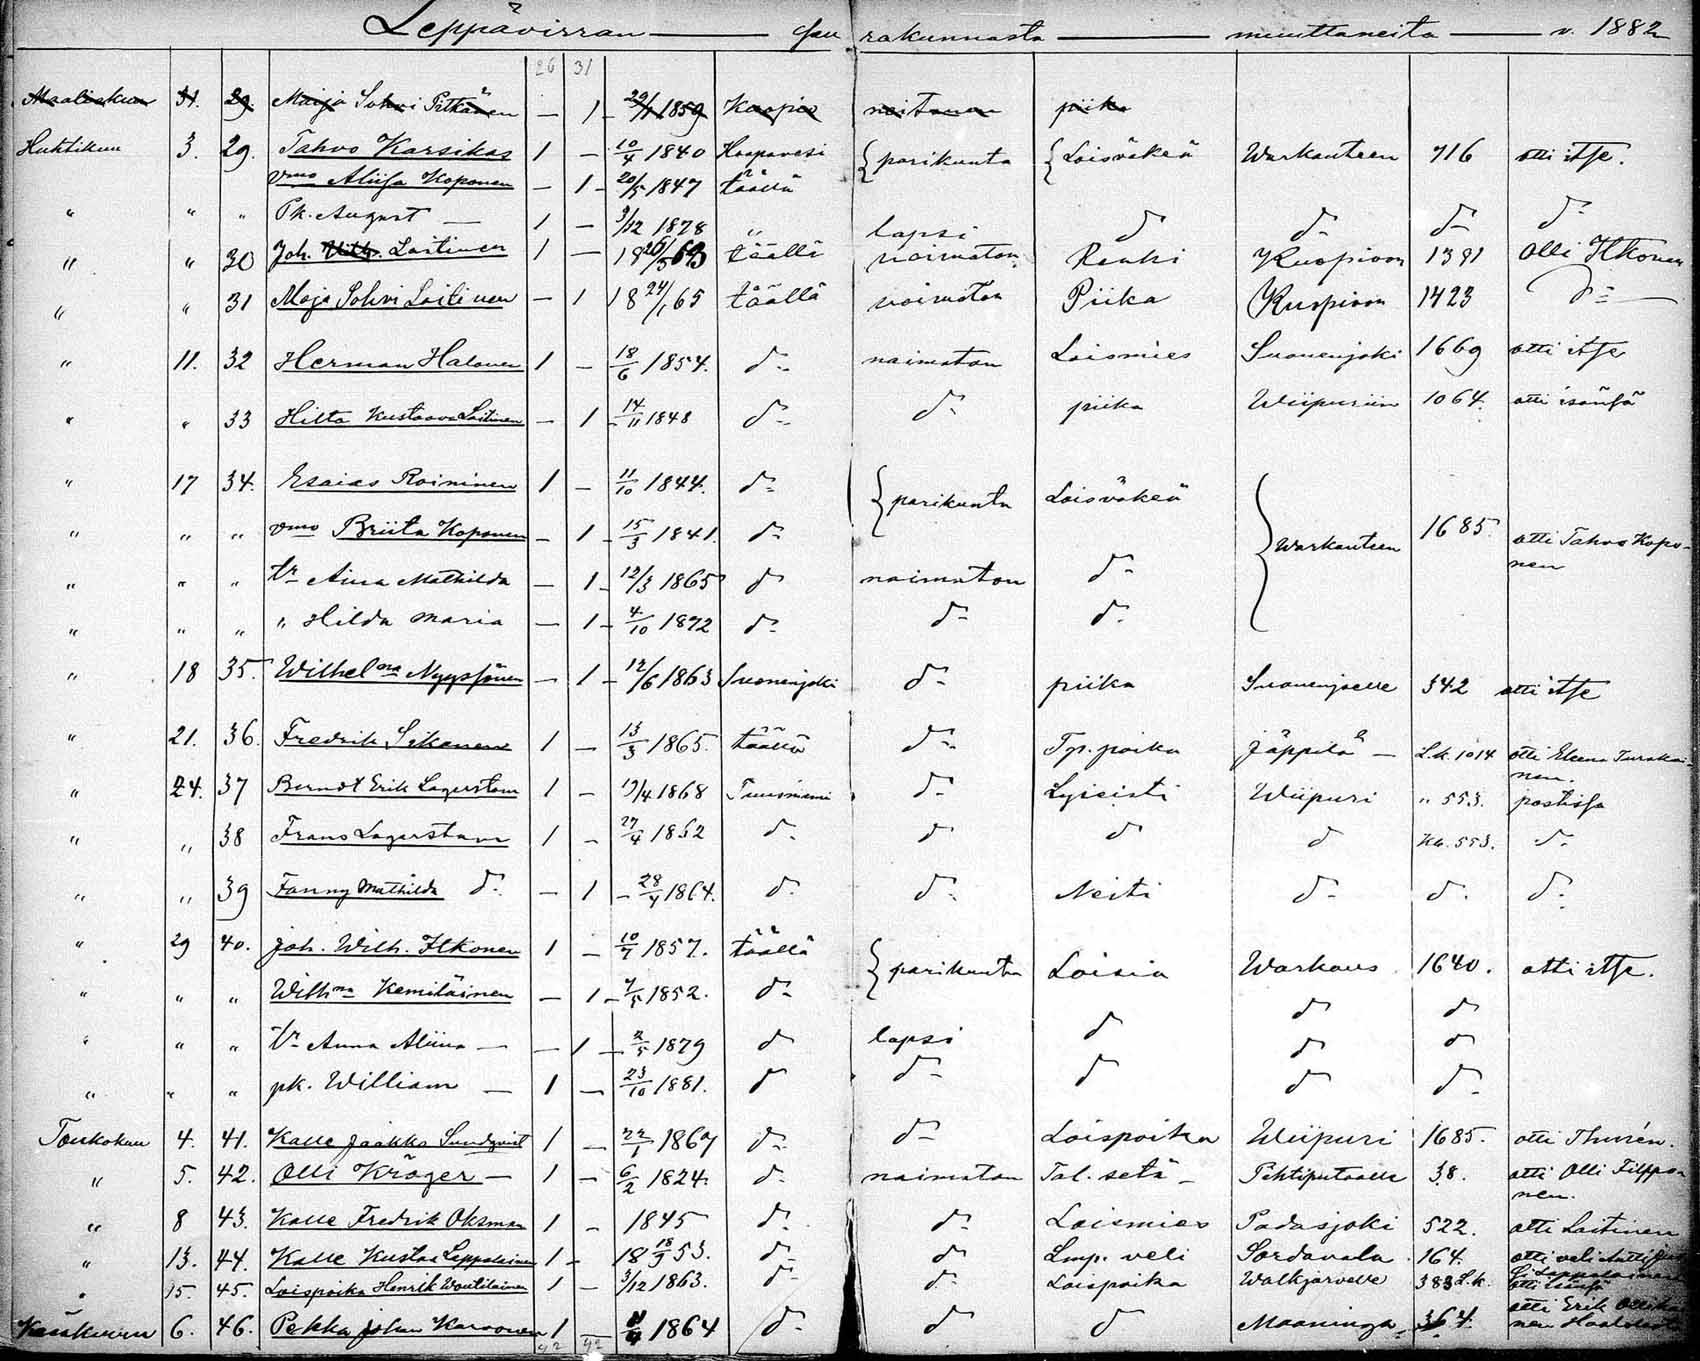 Leppävirran — seurakunnasta — muuttaneita — v. 1882
26 31
Maaliskuu 31. 29. Maija Sohvi Pitkänen — 1 — 29/1 1859 Kuopio naimaton piika
Huhtikuu 3. 29. Tahvo Karsikas 1 — 10/4 1840 Haapavesi { parikunta { Loisväkeä Warkauteen 716 otti itse.
vmo Aliisa Koponen — 1 — 20/5 1847 täällä
" " " Pk. August — 1 — 3/12 1878 " lapsi d d:- d:- d:-
" " 30 Joh. Wilh. Laitinen 1 — 18 26/5 63 täällä naimaton Renki Kuopioon 1381 Olli Itkonen
" " 31 Maja Sohvi Laitinen — 1 18 24/1 65 täällä naimaton Piika Kuopioon 1423 d:-
" 11. 32 Herman Halonen 1 — 18/6 1854. d:- naimaton Loismies Suonenjoki 1669 otti itse
" " 33 Hilta Kustaava Laitinen — 1 — 14/11 1848 d:- d:- piika Wiipuriin 1064. otti isäntä
" 17 34. Esaias Roininen 1 — 11/10 1844. d:- { parikunta Loisväkeä { Warkauteen 1685. otti Tahvo Kopo-
nen
" " " vmo Briita Koponen — 1 — 15/3 1841. d:-
" " " tr Aina Mathilda — 1 — 12/3 1865 d naimaton d:-
" " " " Hilda Maria — 1 — 4/10 1872 d:- d:- d:-
" 18 35. Wilhelma Nyyssönen — 1 — 12/6 1863 Suonenjoki d:- piika Suonenjoelle 342 otti itse
" 21. 36. Fredrik Sikanen 1 — 13/3 1865. täällä d:- Typ. poika Jäppilä — Lk. 1014 otti Eleena Turakai-
nen.
" 24. 37 Berndt Erik Lagerstam 1 — 17/4 1868 Tuusniemi d:- Lyseisti Wiipuri " 553. postissa
" " 38 Frans Lagerstam 1 — 27/4 1862 d:- d d d Kb. 553. d:-
" " 39 Fanny Mathilda d:- — 1 — 28/4 1864. d:- d:- Neiti d:- d:- d:-
" 29 40. Joh. Wilh. Itkonen 1 — 10/7 1857. täällä { parikunta Loisia Warkaus 1640. otti itse.
" " " Wilhma Kemiläinen — 1 — 7/5 1852. d:- d d
" " " tr Anna Aliina — — 1 — 2/5 1879 d lapsi d d d
" " " pk. William — 1 — 23/10 1881. d d:- d d d:-
Toukokuu 4. 41. Kalle Jaakko Sundqvist 1 — 22/1 1867 d:- d:- Loispoika Wiipuri 1685. otti Thurén.
" 5. 42. Olli Kröger — 1 — 6/2 1824. d:- naimaton Tal. setä — Pihtiputaalle 38. otti Olli Filppo
nen.
" 8 43. Kalle Fredrik Oksman 1 — 1845 d:- d:- Loismies Padasjoki 522. otti Laitinen
" 13. 44. Kalle Kustaa Leppäläinen 1 — 18 18/9 53. d:- d Lmp. veli Sordavala 164. otti veli Antti
" 15. 45. Loispoika Henrik Woutilainen 1 — 3/12 1863. d:- d:- Loispoika Walkjärvelle 383 Lk. otti
Kesäkuun 6. 46. Pekka Johan Karvonen 1 — 1864 d:- d d Maaninga 364. otti Erik
42 42